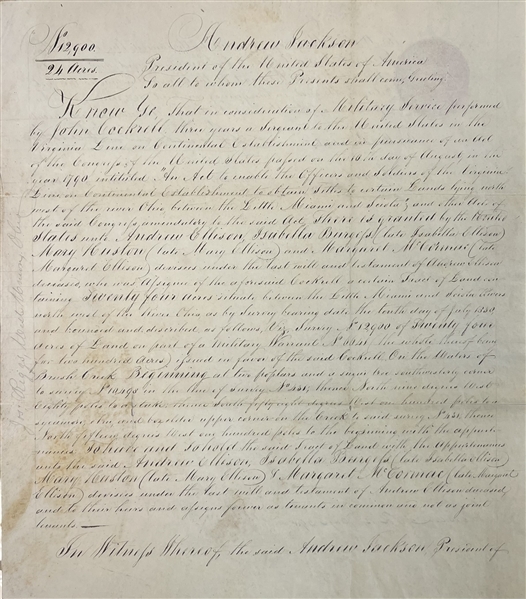 No 12900
24 Acres.
Andrew Jackson
President of the United States of America
To all to whom these Presents shall come, Greeting
Know Ye, That in consideration of Military Service performed
by John Cockrell three years a Sergeant to the United States in the
Virginia Line on Continental Establishment and in pursuance of an Act
of the Congress of the United States passed on the 10th day of August in the
year 1790, intitled "An Act to enable the Officers and Soldiers of the Virginia
Line on Continental Establishment to obtain Titles to certain Lands lying north
west of the river Ohio between the Little Miami and Sciota", and other Acts of
the said Congress amendatory to the said Act, there is granted by the United
States unto Andrew Ellison, Isabella Burgess (late Isabella Ellison)
Mary Huston (late Mary Ellison) and Margaret McCormic (late
Margaret Ellison) devisees under the last will and testament of Andrew Ellison
deceased, who was assignee of the aforesaid Cockrell a certain Tract of Land con
taining Twenty four acres situate between the Little Miami and Sciota rivers
north west of the river Ohio as by Survey bearing date the tenth day of July 1830
and bounded and described as follows, Viz. Survey No 12900 of Twenty four
acres of Land on part of a Military Warrant No the whole thereof being
for two hundred acres) issued in favor of the said Cockrell On the Waters of
Brush Creek Beginning at two poplars and a sugar tree southwesterly corner
to survey No in the line of survey No thence North degrees West
Eighty poles to a stake, thence South fifty eight degrees West one hundred poles to a
sycamore, elm and upper corner on the Creek to said survey No thence
North fifteen degrees West one hundred poles to the beginning with the appurte-
nances. To have and to hold the said Tract of Land with the Appurtenances
unto the said Andrew Ellison, Isabella Burgess (late Isabella Ellison)
Mary Huston (late Mary Ellison) & Margaret McCormic (late Margaret
Ellison) devisees under the last will and testament of Andrew Ellison deceased,
and to their heirs and assigns forever as tenants in common and not as joint
tenants.
In Witness Whereof, the said Andrew Jackson President of